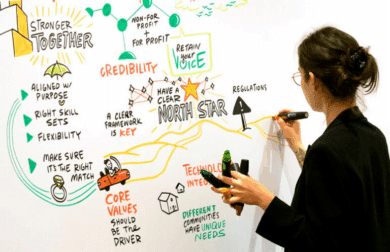 STRONGER
TOGETHER
NON-FOR
PROFIT
+
FOR PROFIT
RETAIN
YOUR
VOICE
CREDIBILITY
ALIGNED W/
PURPOSE
RIGHT SKILL
SETS
FLEXIBILITY
MAKE SURE
IT'S THE RIGHT
MATCH
A CLEAR
FRAMEWORK
IS KEY
HAVE A
CLEAR
NORTH STAR
REGULATIONS
CORE
VALUES
SHOULD
BE THE
DRIVER
DIFFERENT
COMMUNITIES
HAVE UNIQUE
NEEDS